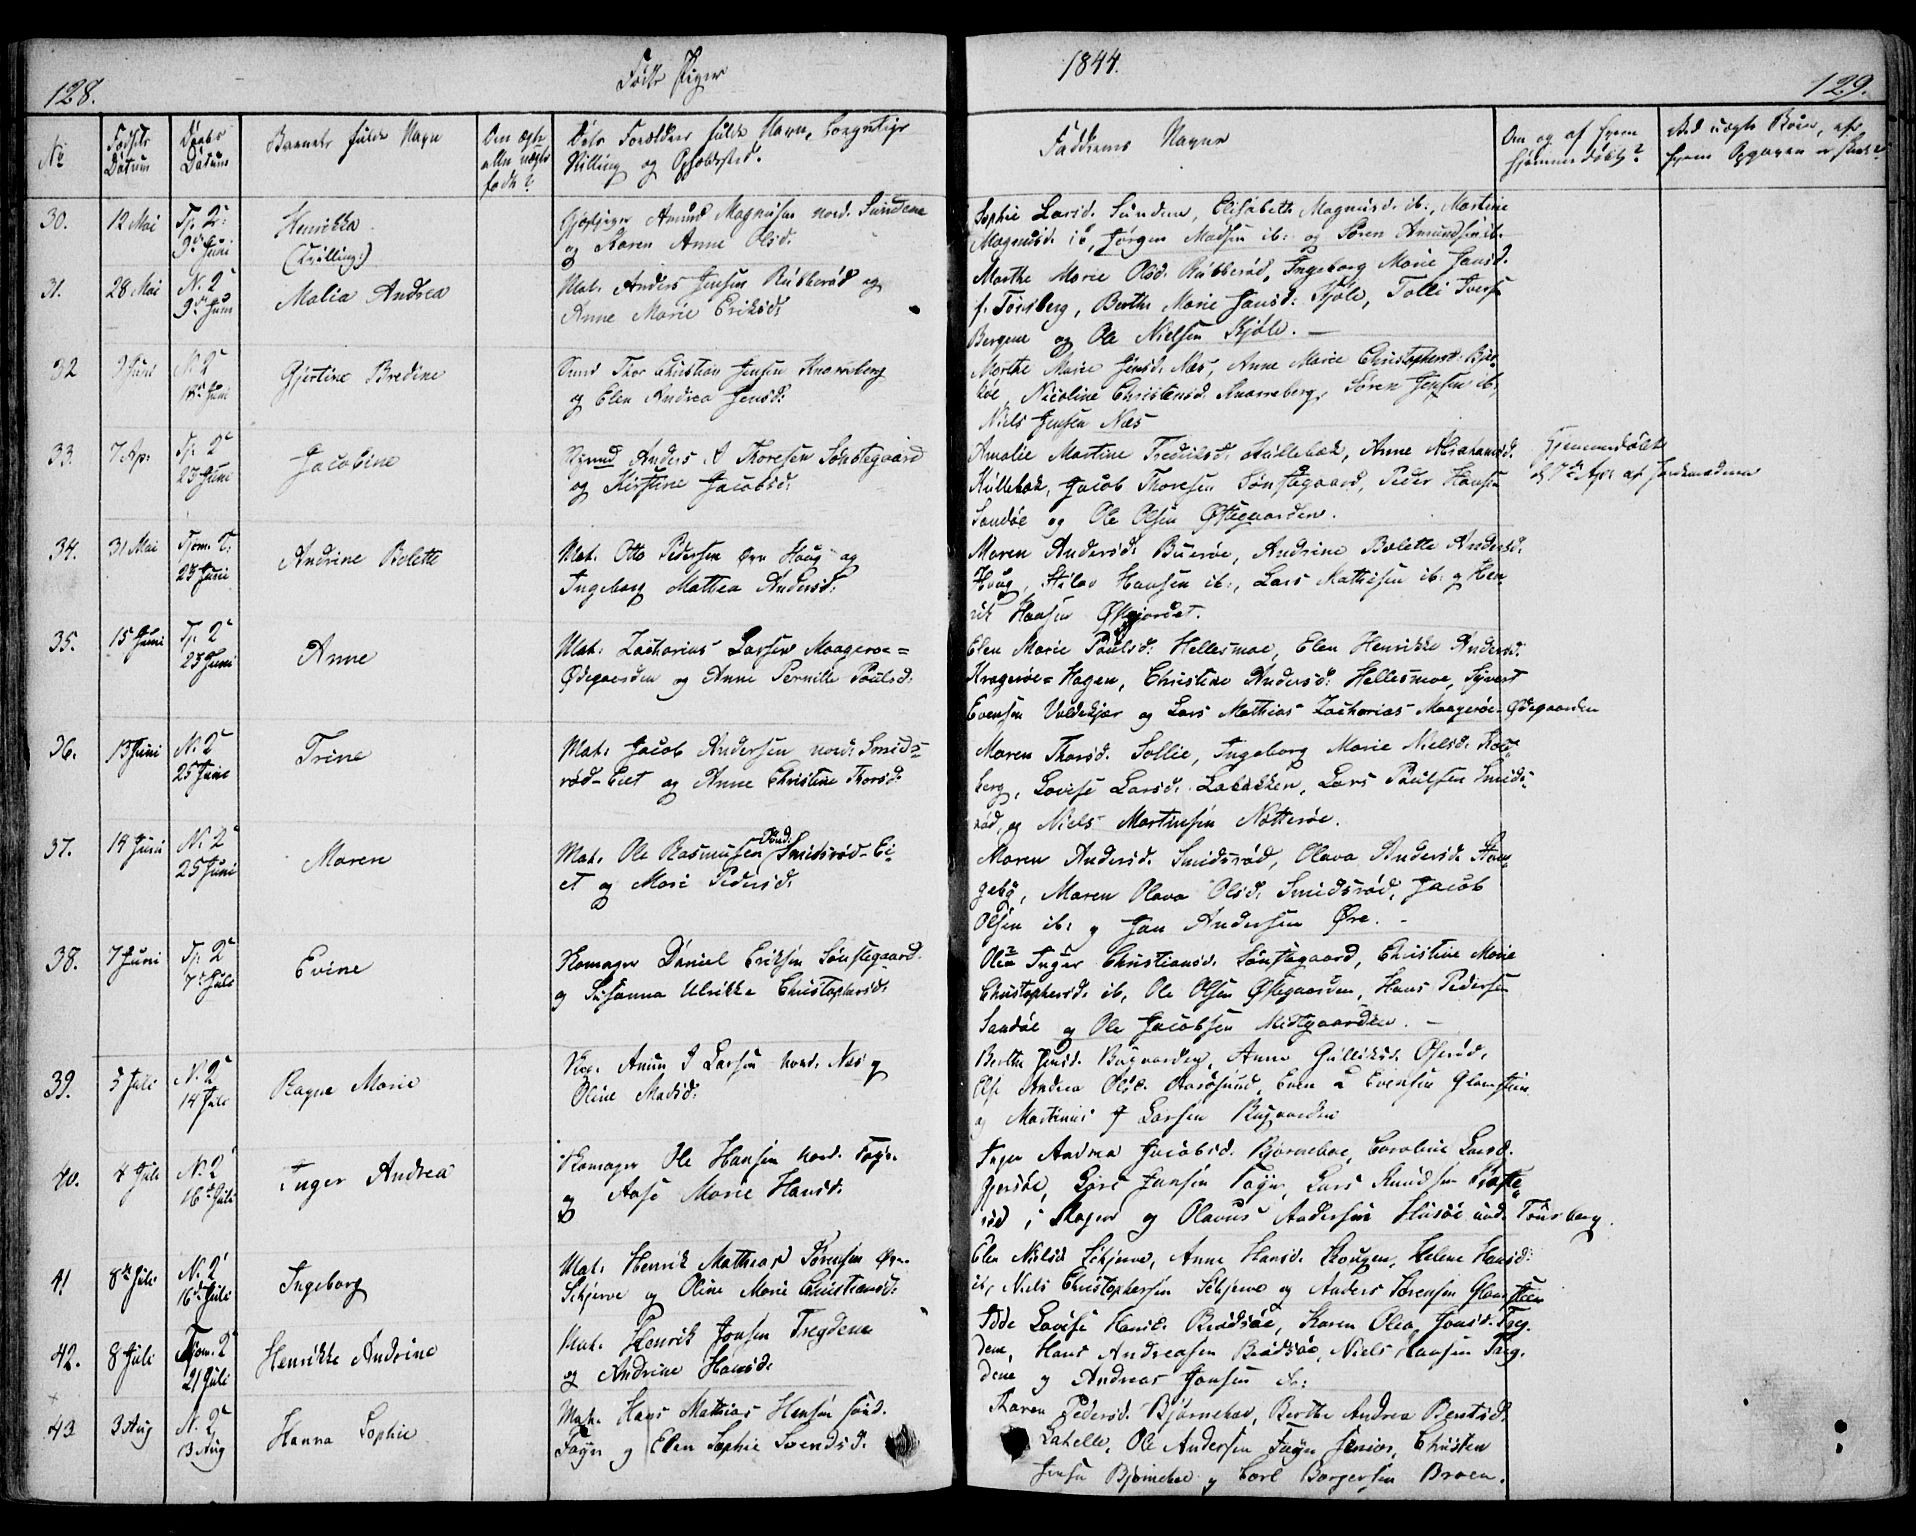 128.
Fødte Piger
1844.
129.
No
Fødsels
Datum
Daabs
Datum
Barnets fulde Navn
Om ægte
eller uægte
født?
Dets Forældres fulde Navn, borgerlige
Stilling og Opholdsted.
Faddernes Navne
Om og af hvem
hjemmedøbt?
Ved uægte Børn, efter
hvem Opgaven er skeet?
30.
12 Mai
Tj. K:
9de Juni
Henrikka
(Tvilling:)
Amund Magnusen nord. Sundene
og Karen Anne Olsd.
Sophie Larsd. Sundene, Elisabeth Magnusd. ib:, Martine
Magnusd. ib, Jørgen Madsen ib: og Søren Amundsen ib.
31.
28 Mai
N. K
9de Juni
Malia Andrea
Mat. Anders Jensen Rubberød og
Anne Marie Eriksd:
Marthe Marie Olsd. Rubberød, Ingeborg Marie Hansd.
f. Tønsberg, Berthe Marie Hansd: Kjøle, Tolli Ivers
Bergene og Ole Nielsen Kjøle. —
32
9 Juni
N. K
Juni
Gjertine Bredine
Thor Christian Jensen Knarreberg
og Elen Andrea Jensd:
Marthe Marie Jensd. Næs, Anne Marie Christophersd. Bjer-
køe, Nicoline Christensd. Knarreberg, Søren Jensen ib,
Niels Jensen Næs
33.
7 Ap:
Tj. K
23 Juni
Jacobine
Anders A Thoresen Sønstegaard
og Kirstine Jacobsd.
Amalie Martine Fredriksd. Kullebæk, Anne Abrahamsd.
Kullebæk, Jacob Thoresen Sønstegaard, Peder Hansen
Sandøe og Ole Olsen Østegaarden.
Hjemmedøbt
d. 7de Apr. af Jordemoderen
34.
31 Mai
Tjøm. K:
23 Juni
Andrine Bolette
Mat. Otto Pedersen øvr. Houg og
Ingeborg Mathea Andersd:
Maren Andersd: Buerøe, Andrine Bolette Andersd.
Houg, Hansen ib:, Lars Mathisen ib: og Hen
rik Hansen Østgjordet.
35.
15 Juni
Tj. K
23 Juni
Anne
Mat. Zacharias Larsen Maagerøe=
Ødegaarden og Anne Pernille Poulsd:
Elen Marie Poulsd: Hellesmoe, Elen Henrikke Andersd.
Kragerøe=Hagen, Christine Andersd: Hellesmoe, Syvert
Evensen Voldekjær og Lars Mathias Zacharias Maagerøe Ødegaarden
36.
13 Juni
N. K
25 Juni
Trine
Mat. Jacob Andersen nord. Smids=
rød-Eiet og Anne Christine Thorsd:
Maren Thorsd. Sollie, Ingeborg Marie Nielsd. Kol-
berg, Lovise Larsd. Labakken, Lars Paulsen Smids-
rød, og Niels Martinsen Nøtterøe.
37.
14 Juni
N. K
25 Juni
Maren
Mat. Ole Rasmusen Sønd. Smidsrød-Ei-
et og Mari Pedersd.
Maren Andersd. Smidsrød, Olava Andersd.
Maren Olava Olsd. Smidsrød, Jacob
Olsen ib: og Jan Andersen Øre. -
38.
7 Juni
Tj. K
7de Juli
Evine
Skomager Daniel Eriksen Sønstegaard
og Susanna Ulrikke Christophersd:
Olea Inger Christiansd. Sønstegaard, Christine Marie
Christophersd. ib, Ole Olsen Østegaarden, Hans Pedersen
Sandøe og Ole Jacobsen Midtgaarden. —
39.
5 Juli
N. K
14 Juli
Ragne Marie
Larsen nord. Næs og
Oline Madsd:
Berthe Jensd. Bugaarden, Anne Gulliksd. Oserød,
Else Andrea Olsd. Aarøsund, Even L Evensen Glomstein
og Martinus J Larsen Bugaarden
40.
4 Juli
N. K
16de Juli
Inger Andrea
Skomager Ole Hansen nord. Føyn.
og Aase Marie Hansd:
Inger Andrea Jacobsd. Bjørneboe, Caroline Larsd.
Gjersøe, Lars Jansen Føyn, Lars Knudsen
rød i Slagen og Olavus Andersen Husøe ved Tønsberg.
41
8de Juli
N. K
16de Juli
Ingeborg
Mat. Henrik Mathias Sørensen Øvr.
Schjerve og Oline Marie Christiansd:
Elen Nielsd. Schjerve, Anne Hansd. Skougen, Helene Hansd:
ib, Niels Christophersen Schjerve og Anders Sørensen Glomsteen
42.
8 Juli
Tjøm. K
21 Juli
Henrikke Andrine
Mat. Henrik Jonsen Tregdene
og Andrine Hansd.
Lovise Hansd. Brødsøe, Karen Olea Jonsd. Treg-
dene, Hans Andreasen Brødsøe, Niels Hansen Treg-
dene og Andreas Jonsen ib:
43
3 Aug
N. K
13 Aug
Hanna Sophie
Mat. Hans Mathias Hensen sønd.
Føyn og Elen Sophie Svendsd.
Karen Pedersd. Bjørneboe, Berthe Andrea Berntsd.
Lahelle, Ole Andersen Føyn senior, Christen
Jensen Bjørneboe og Carl Borgersen Broen.